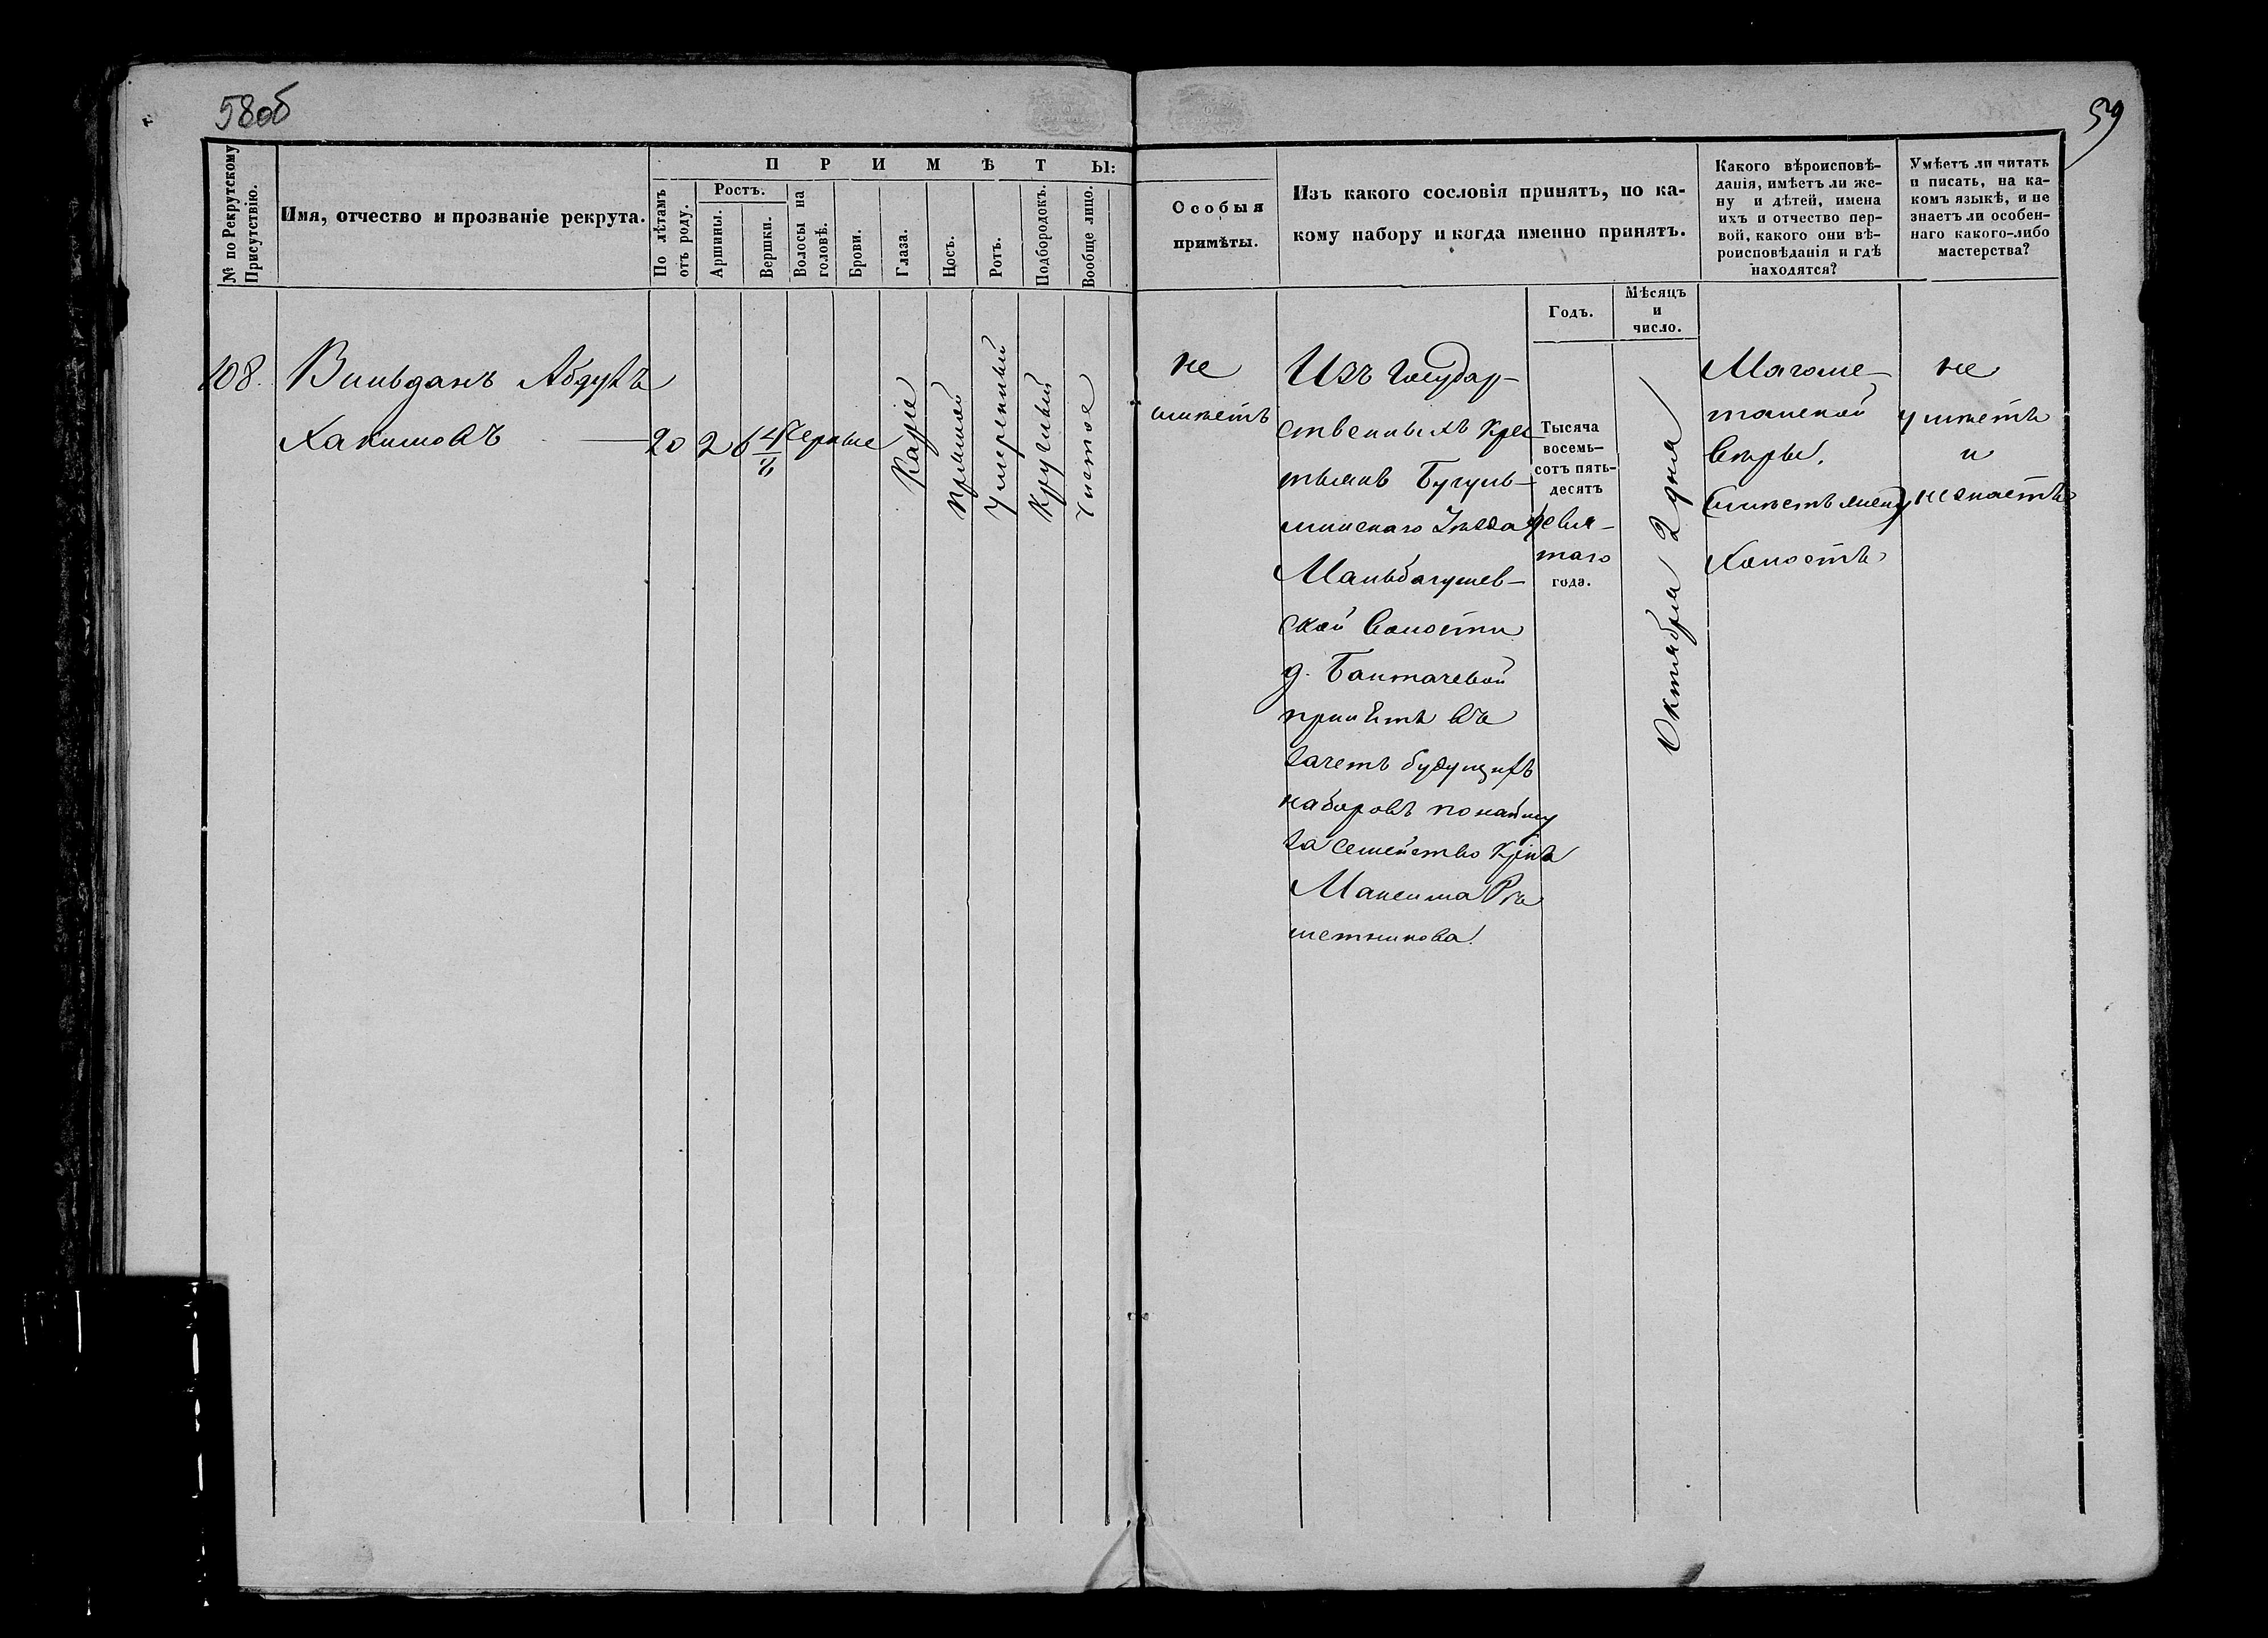 58об
59
№ по Рекрутскому
Присутствію.
Имя, отчество и прозваніе рекрута.
П Р И М Ѣ Т Ы:
По лѣтамъ
отъ роду.
Ростъ.
Аршины.
Вершки.
Волосы на
головѣ.
Брови.
Глаза.
Носъ.
Ротъ.
Подбородокъ.
Вообще лицо.
Особыя
примѣты.
Изъ какого сословія принятъ, по ка-
кому набору и когда именно принятъ.
Годъ.
Мѣсяцъ
и
число.
Какого вѣроисповѣ-
данія, имѣетъ ли же-
ну и дѣтей, имена
ихъ и отчество пер-
вой, какого они вѣ-
роисповѣданія и гдѣ
находятся?
Умѣетъ ли читать
и писать, на ка-
комъ языкѣ, и не
знаетъ ли особен-
наго какого-либо
мастерства?
108.
Вильданъ Абдулъ
Хакимовъ
20
2
6 4/8
Черные
Каріе
Прямой
Умеренный
Круглый
Чистое
не
имѣетъ
Изъ Государ-
ственныхъ Крес
тьянъ Бугуль-
минскаго Уѣзда
Мальбагушев-
ской Волости
д. Баитачевой
принятъ въ
зачетъ будущихъ
наборовъ по найму
за семейство Крѣна
Максима Рѣ
шетникова.
Тысяча
восемь-
сотъ пять-
десятъ
девя-
таго
года.
Октября 2 дня
Магоме-
танской
Вѣры.
Холостъ
не
умѣетъ
и
не знаетъ